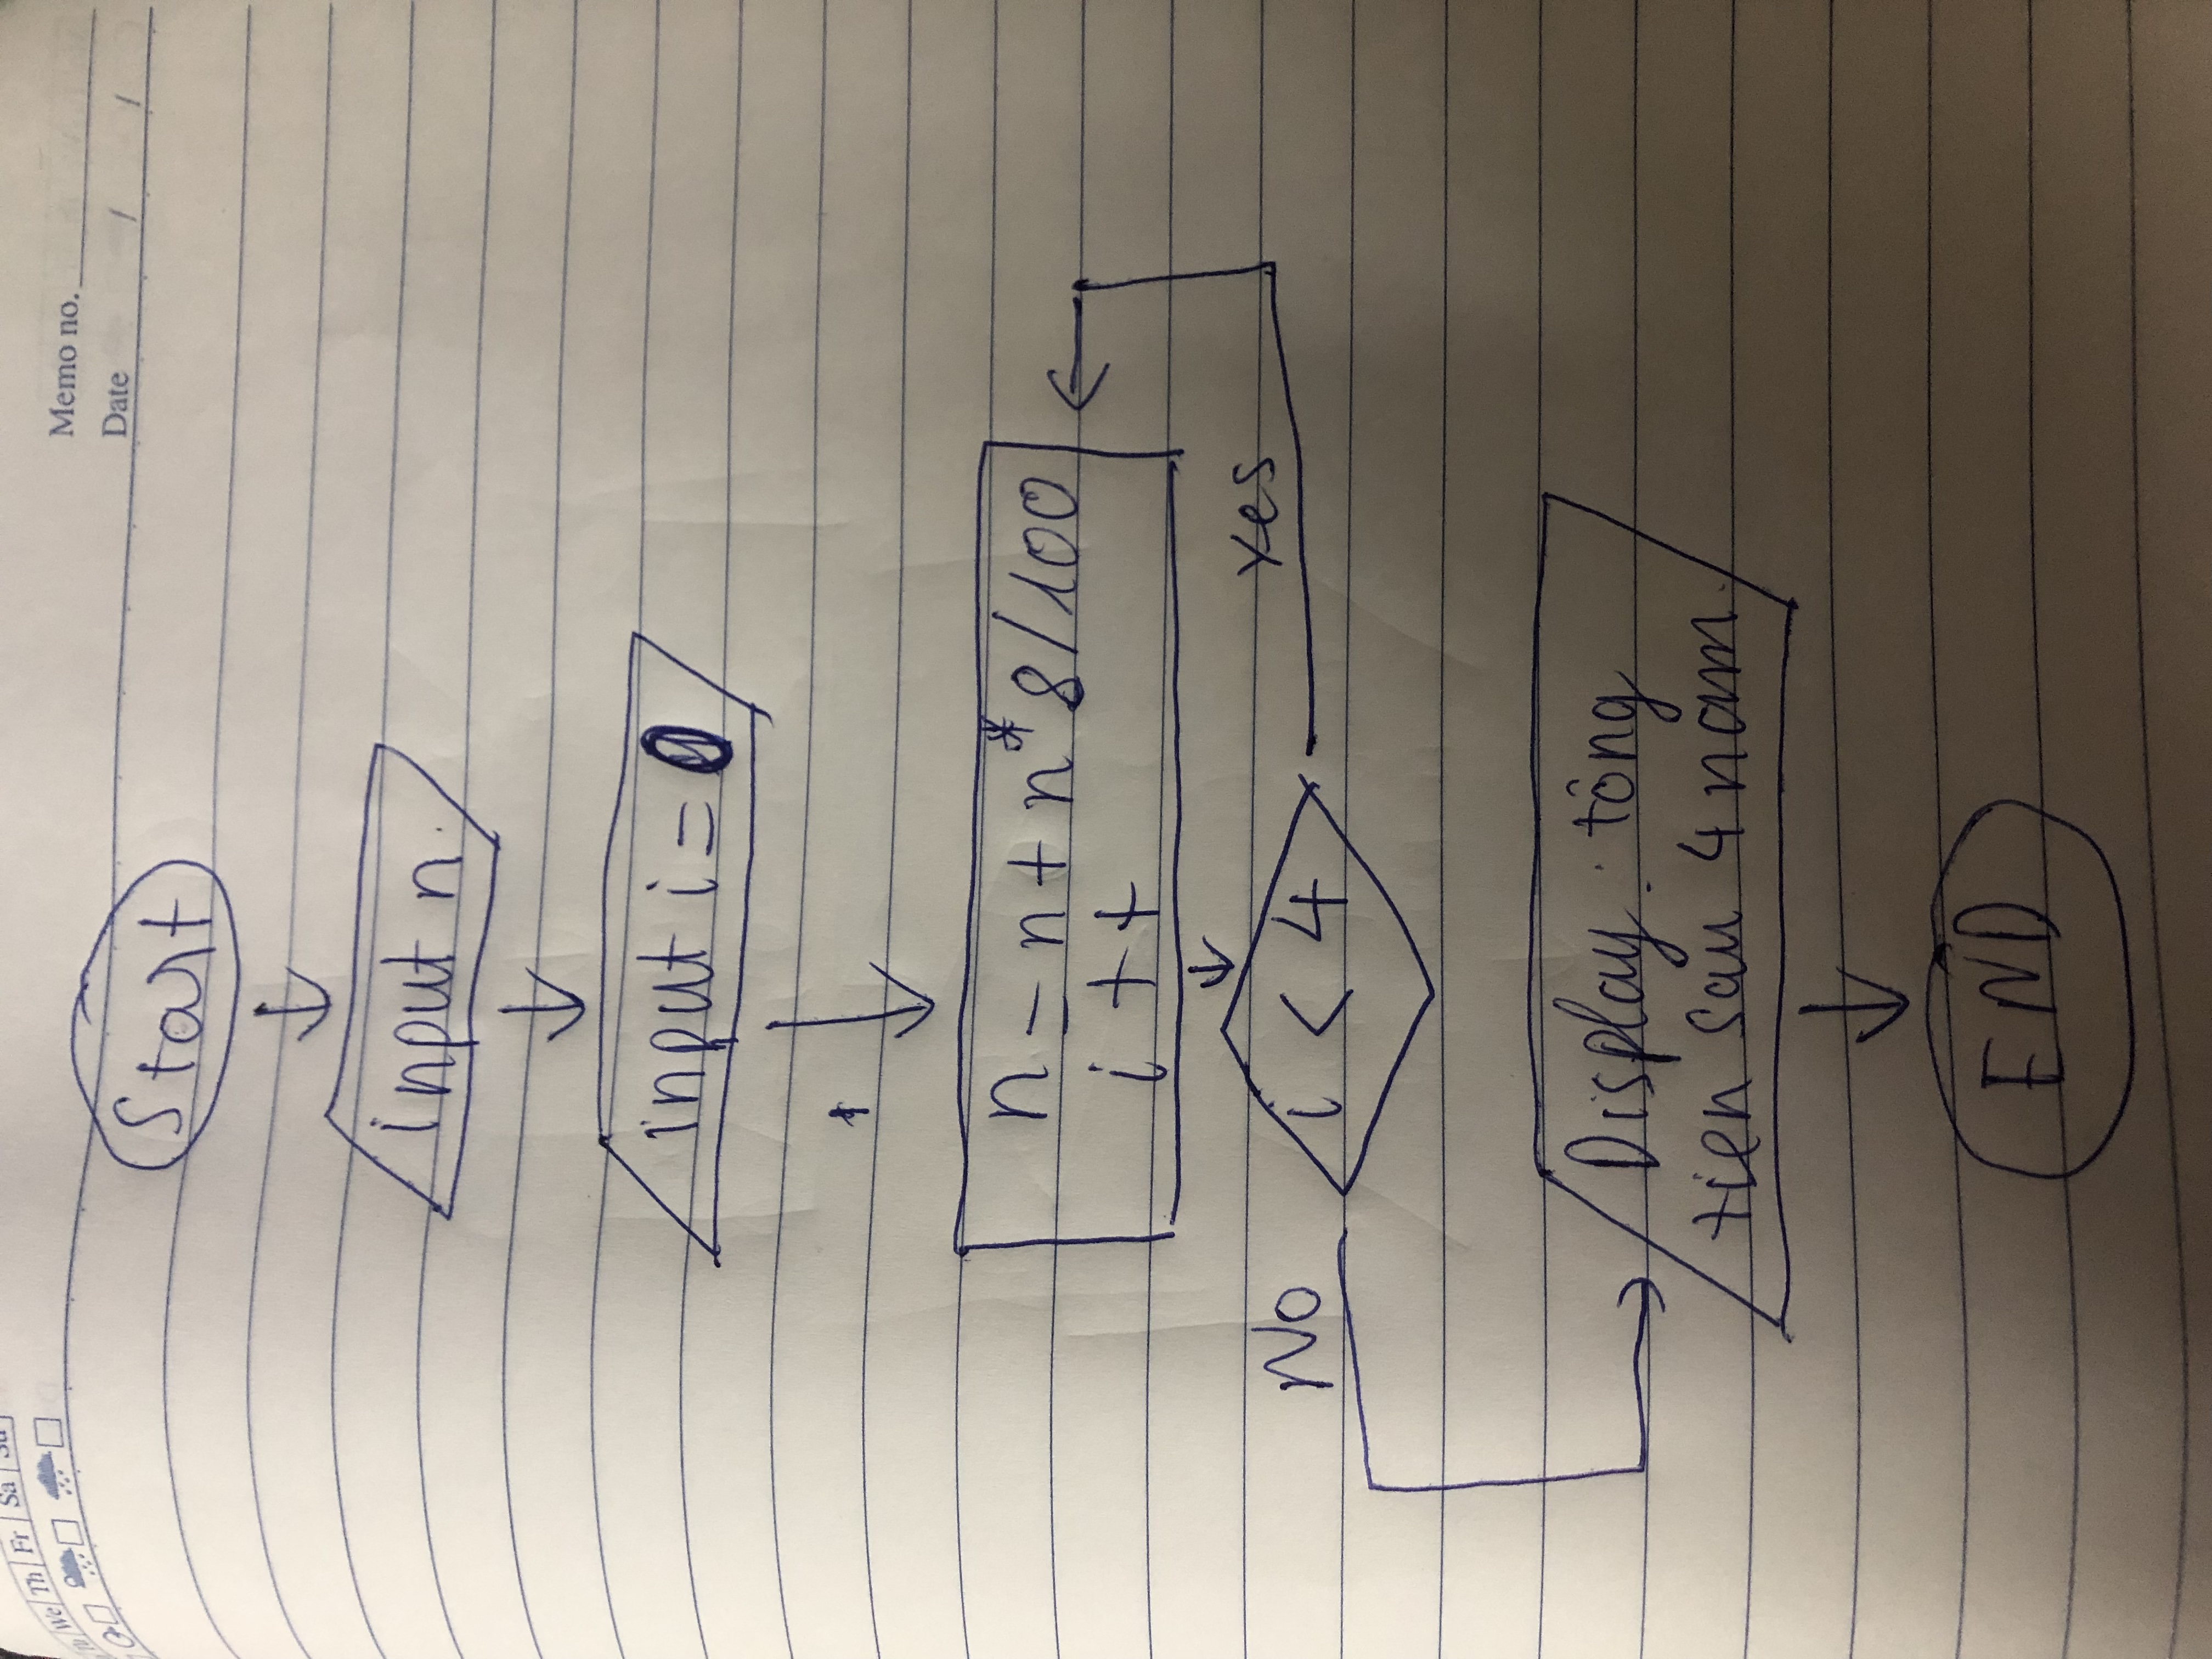 Tu We Th Fr Sa Su
Memo no.
Date / /
Start
input n.
input i = 0
n = n + n * 8/100
i ++
i < 4
No
Yes
Display: tông
tien sau 4 nam.
END